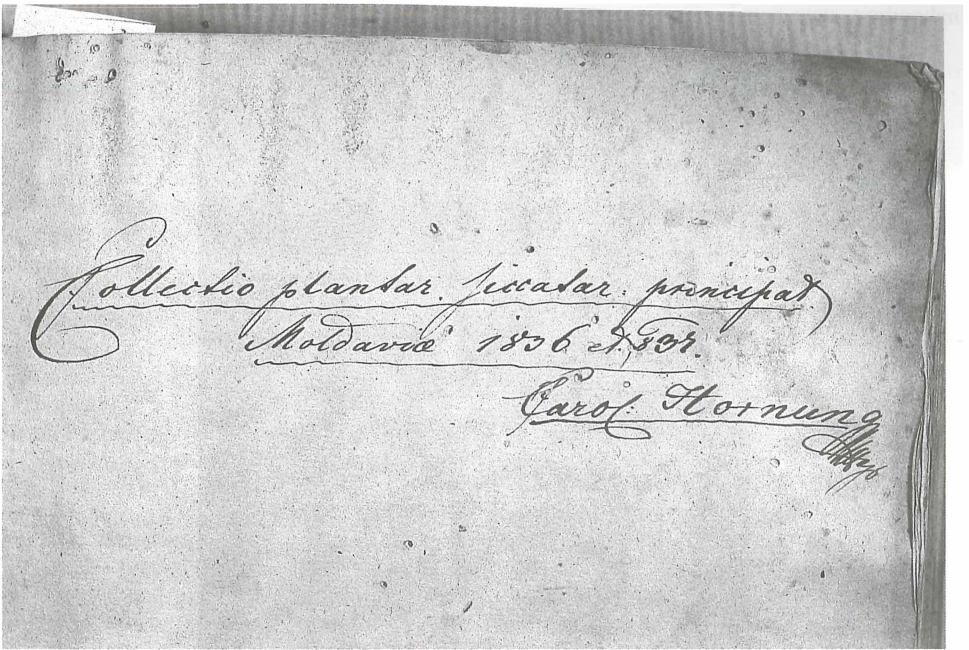 Collectio plantar. siccatar. principat
Moldaviæ 1836 et 837.
Carol. Hornung